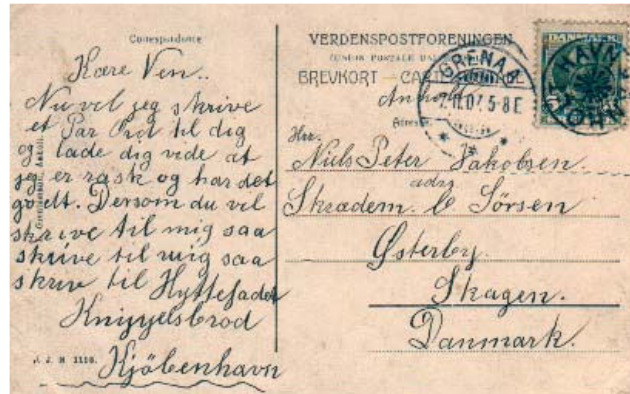 Correspondance
Kære Ven..
Nu vel jeg skrive
et Par Ord til dig
og lade dig vide at
jeg er rask og har det
godt. Dersom du vel
skrive til mig saa
skrive til mig saa
skriv til Hyttefadet
Knippelsbrod
Kjöbenhavn
J. J. N 1110.
VERDENSPOSTFORENINGEN
(UNION POSTALE
BREVKORT - CARTE
Anholt
Adresse
GRENAA
2.11.07. 5-8 E
HAVN
ANHOLT
DANMARK
Hrr.
Niels Peter Jakobsen.
adr
Skrædem. C Sörsen
Østerby.
Skagen.
Danmark.